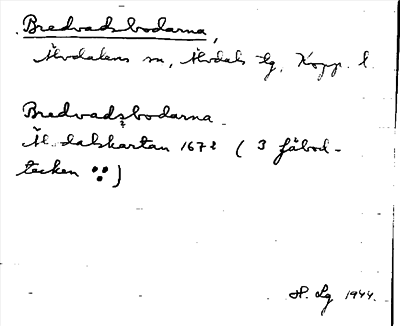 Bredvadsbodarna,
Älvdalens sn, Älvdals tg, Kopp. l.
Bredvadzbodarna
Äl dalskartan 1672 ( 3 fäbod-
tecken )
H. Lg 1944.